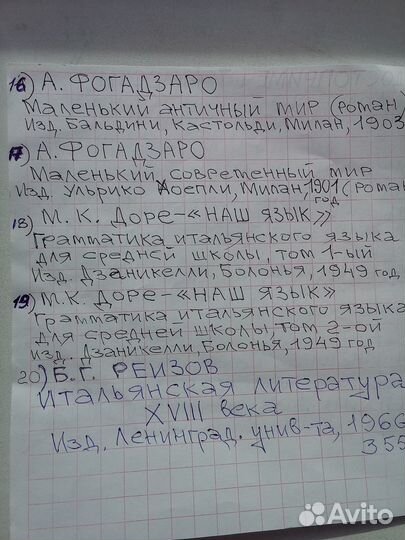 16) А. ФОГАДЗАРО
Маленький античный мир (роман)
Изд. Бальдини, Кастольди, Милан, 1903
17) А. ФОГАДЗАРО
Маленький современный мир
Изд. Ульрико Хоепли, Милан, 1901 (роман
год
18) М. К. Доре - «НАШ ЯЗЫК»
Грамматика итальянского языка
для средней школы, том 1-ый
Изд. Дзаникелли, Болонья, 1949 год,
19) М.К. Доре - «НАШ ЯЗЫК»
Грамматика итальянского языка
для средней школы, том 2-ой
изд. Дзаникелли, Болонья, 1949 год
20) Б. Г. РЕИЗОВ
Итальянская литература
XVIII века
Изд. Ленинград. унив-та, 1966
355
Avito